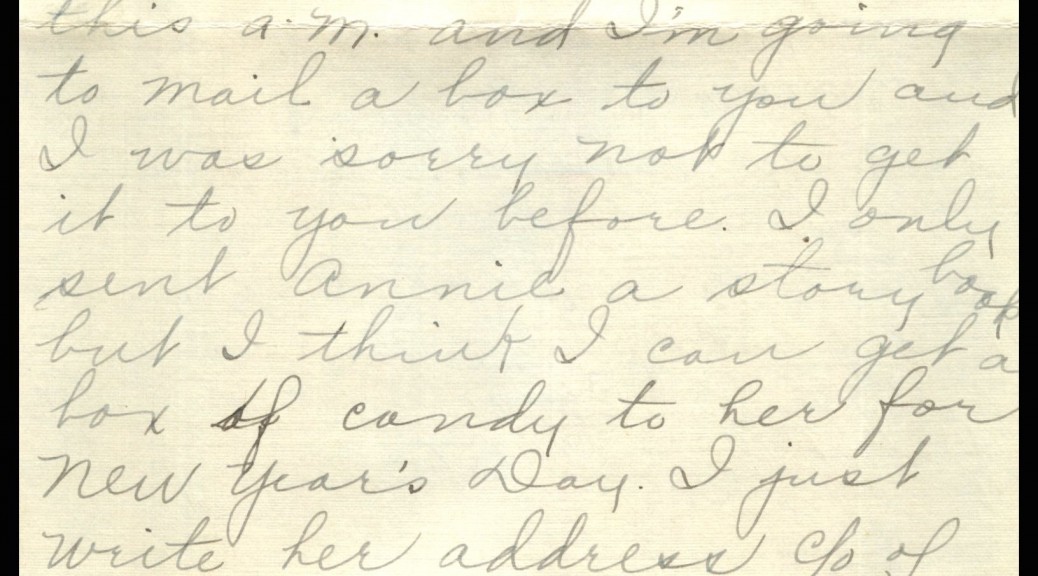 this a.m. and I'm going
to mail a box to you and
I was sorry not to get
it to you before. I only
sent Annie a story book
but I think I can get a
box of candy to her for
New Year's Day. I just
write her address c/o of